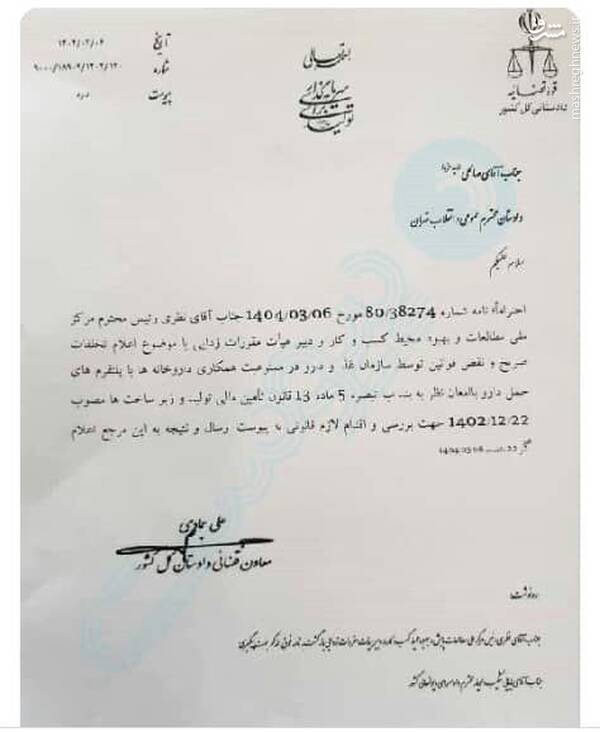 مشرق
mashreghnews.ir
قوه قضائیه
دادستانی کل کشور
بسمه تعالی
سرمایه‌گذاری
برای
تولید
تاریخ ۱۴۰۴/۰۳/۰۶
شماره
پیوست دارد
جناب آقای صالحی
دادستان محترم عمومی و انقلاب تهران
سلام علیکم
احتراماً؛ نامه شماره 80/38274 مورخ 1404/03/06 جناب آقای نظری رئیس محترم مرکز
ملی مطالعات و بهبود محیط کسب و کار و دبیر هیأت مقررات زدایی با موضوع اعلام تخلفات
صریح و نقض قوانین توسط سازمان غذا و دارو در ممنوعیت همکاری داروخانه ها با پلتفرم های
حمل دارو باامعان نظر به بند ب تبصره 5 ماده 13 قانون تأمین مالی تولید و زیر ساخت ها مصوب
1402/12/22 جهت بررسی و اقدام لازم قانونی به پیوست ارسال و نتیجه به این مرجع اعلام
گردد.
علی
معاون قضائی دادستان کل کشور
رونوشت:
جناب آقای نظری رئیس مرکز ملی مطالعات پایش و بهبود محیط کسب و کار و دبیر هیات مقررات زدایی
جناب آقای محترم دادسرای دیوانعالی کشور